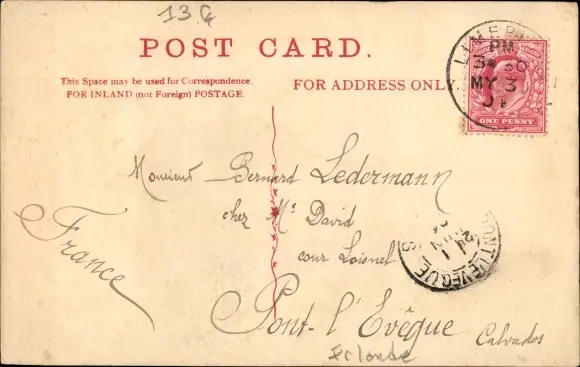 13 G
POST CARD.
This Space may be used for Correspondence.
FOR INLAND (not Foreign) POSTAGE.
FOR ADDRESS ONLY.
PM
MY 3
ONE PENNY
Monsieur Bernard Ledermann
chez Me David
cour Loisnel
Pont-l'Evêque
Calvados
France
PONT-L'EVEQUE
Irlande